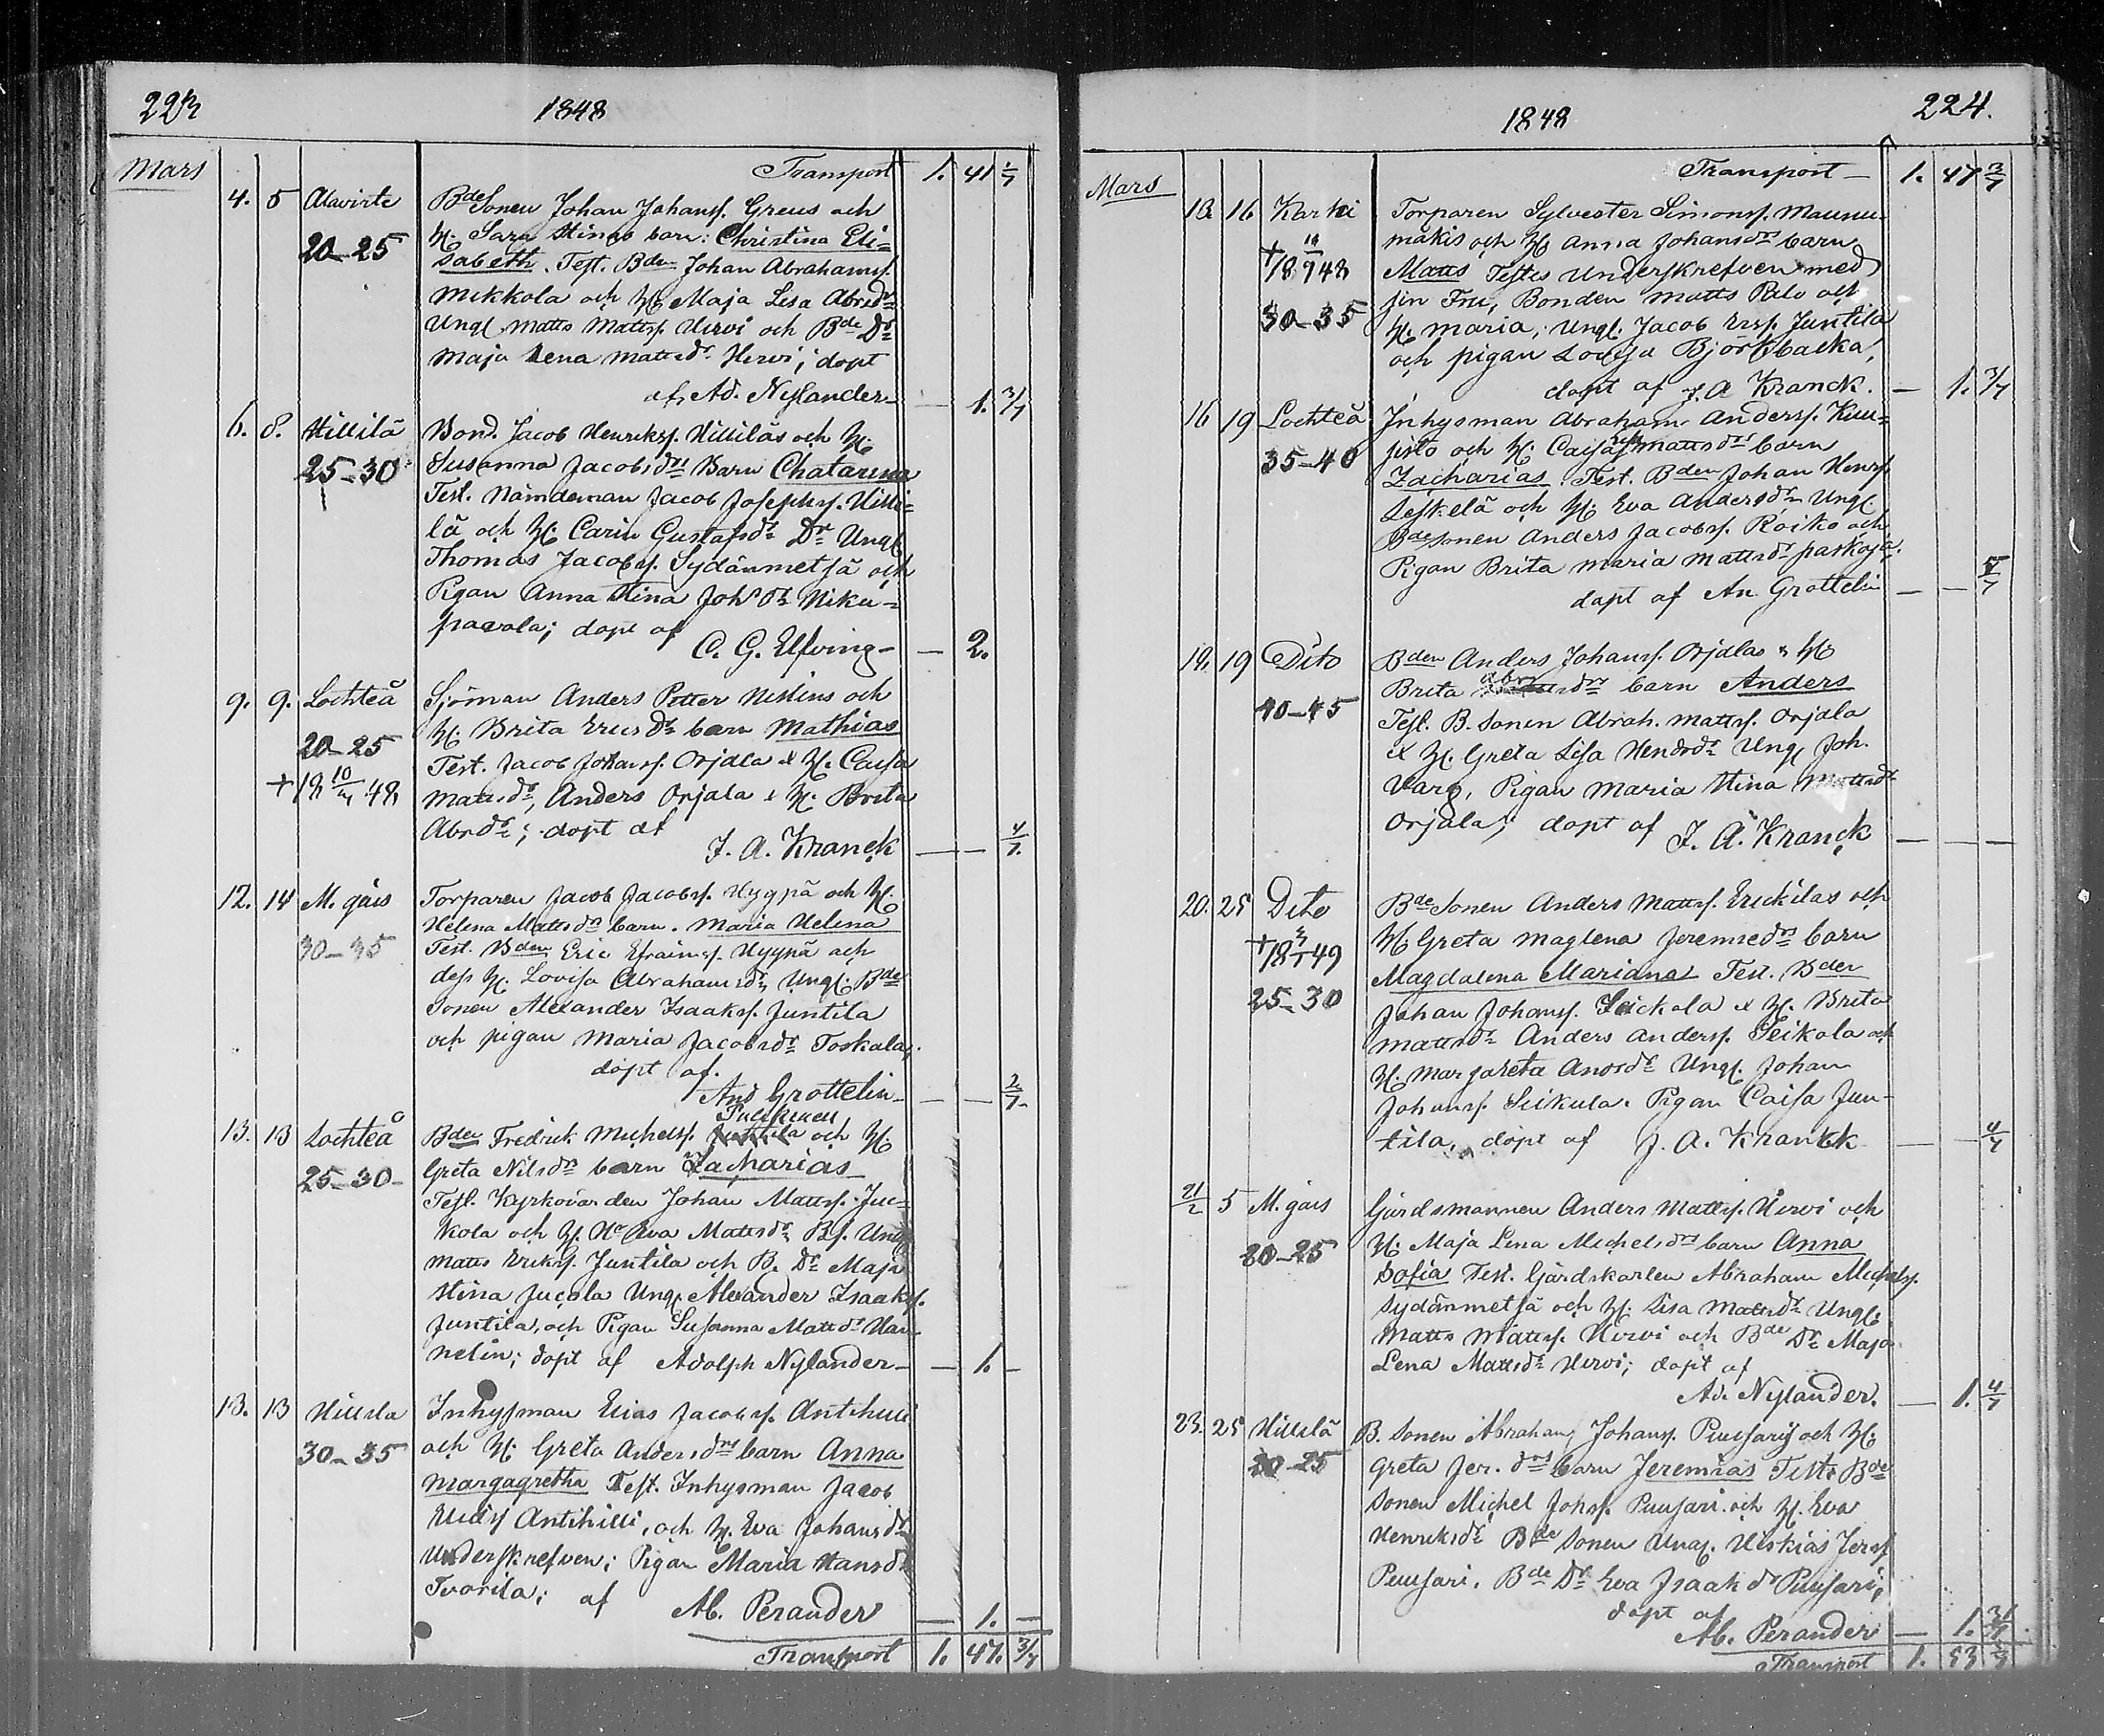 223 1848
Mars Transport 1. 41 1/7
4. 5 Alavirte Bde Sonen Johan Johansf. Greus och
20-25 H. Sara Stinas barn: Christina Eli=
sabeth. Test. Bden Johan Abrahamsf.
Mikkola och H. Maja Lisa Abrsdr
Ungl. Matts Mattsf. Hirvi och Bde Dr
Maja Lena Mattsdr Hirvi; döpt
af Ad. Nylander - 1. 3/7
6. 8. Hillilä Bond. Jacob Henriksf. Hilliläs och H.
25-30 Susanna Jacobsdrs Barn Chatarina
Test. Nämdeman Jacob Josephsf. Hilli=
lä och H. Carin Gustafsdr Dr Ungl.
Thomas Jacobsf. Sydänmetsä och
Pigan Anna Stina Johsdr Niku=
paavola; döpt af
C. G. Elfving - 2.
9. 9. Lochteå Sjöman Anders Petter Neslins och
20-25 H. Brita Ericsdr barn Mathias
Test. Jacob Johansf. Orjala & H. Caisa
+18 10/4 48 Mattsdr, Anders Orjala & H. Brita
Abrdr; döpt af
J. A. Kranck - - 4/7
12. 14 M. gäis Torparen Jacob Jacobsf. Hyypä och H.
30-35 Helena Mattsdrs barn. Maria Helena
Test. Bden Eric Efraimsf. Hyypä och
dess H. Lovisa Abrahamsdr, Ungl. Bde
Sonen Alexander Isaaksf. Juntila
och pigan Maria Jacobsdr Toskala,
döpt af.
And Grottelin - - 2/7
13. 13 Lochteå Bden Fredrik Michelsf. och H.
25-30 Greta Nilsdrs barn Zacharias
Test. Kyrkovärden Johan Mattsf. Juc=
kola och H. Hr Eva Mattsdr Bf. Ungl
Matts Eriksf. Juntila och B. Dr Maja
Stina Jucola Ungl. Alexander Isaaksf.
Juntila, och Pigan Susanna Mattsdr Han
nelin; döpt af Adolph Nylander - 1. -
13. 13 Hillila Inhysman Elias Jacobsf. Antihilli
30-35 och H. Greta Andersdrs barn Anna
Margagretha Test. Inhysman Jacob
Antihilli, och H. Eva Johansdr
Underskrefven; Pigan Maria Hansdr
Tvorila; af Ab. Perander - 1. -
Transport 1. 47. 3/7
1848 224.
Mars Transport 1. 47 3/7
10. 16 Karhi Torparen Sylvester Simonsf. Maunu=
mäkis och H. Anna Johansdrs barn
+18 19/9 48 Matts Testes Underskrefven med
sin Fru, Bonden Matts Palo och
30-35 H. Maria, Ungl. Jacob Ersf. Juntila
och pigan Lovisa Björkbacka,
döpt af J. A Kranck. - 1. 3/7
16 19 Lochteå Inhysman Abraham Andersf. Kuu=
35-40 sisto och H. Caisa Mattsdrs barn
Zacharias. Test. Bden Johan Henrsf
Leskelä och H. Eva Andersdr Ungl
Bde Sonen Anders Jacobsf. Roiko och
Pigan Brita Maria Mattsdr paskoja.
döpt af An Grottelin - - 5/7
18. 19 Dito Bden Anders Johansf. Orjalas & H.
Brita Abrsdrs barn Anders
40-45 Test. B. Sonen Abrah. Mattsf. Orjala
& H. Greta Lisa Hendrsdr Ungl Joh.
Varg, Pigan Maria Stina Mattsdr
Orjala; döpt af J. A. Kranck - - -
20. 25 Dito Bde Sonen Anders Mattsf. Erickilas och
H. Greta Maglena Jeremiedrs barn
+18 3/1 49 Magdalena Mariana Test. Bden
25-30 Johan Johansf. Seickala & H. Brita
Mattsdr Anders Andersf. Seikola och
H. Margareta Andrsdr Ungl. Johan
Johansf. Seikula. Pigan Caisa Jun-
tila, döpt af J. A. Kranck - - 4/7
21/2 5 M. gäis Gårdsmannen Anders Mattsf. Hirvi och
20-25 H. Maja Lena Michelsdrs barn Anna
Sofia Test. Gårdskarlen Abraham Michelsf.
Sydänmetsä och H. Lisa Mattsdr Ungl.
Matts Mattsf. Hirvi och Bde Dr Maja
Lena Mattsdr Hirvi; döpt af
Ad. Nylander. - 1. 4/7
23. 25 Hillilä B. Sonen Abraham Johansf. Puusarij och H.
20-25 Greta Jer. drs barn Jeremias Test. Bde
Sonen Michel Johsf. Puusari och H. Eva
Henriksdr Bde Sonen Ungl. Heskias Jersf
Puusari. Bde Dr Eva Isaaksdr Puusari,
döpt af
Ab. Perander - 1. 3/7
Transport 1. 53